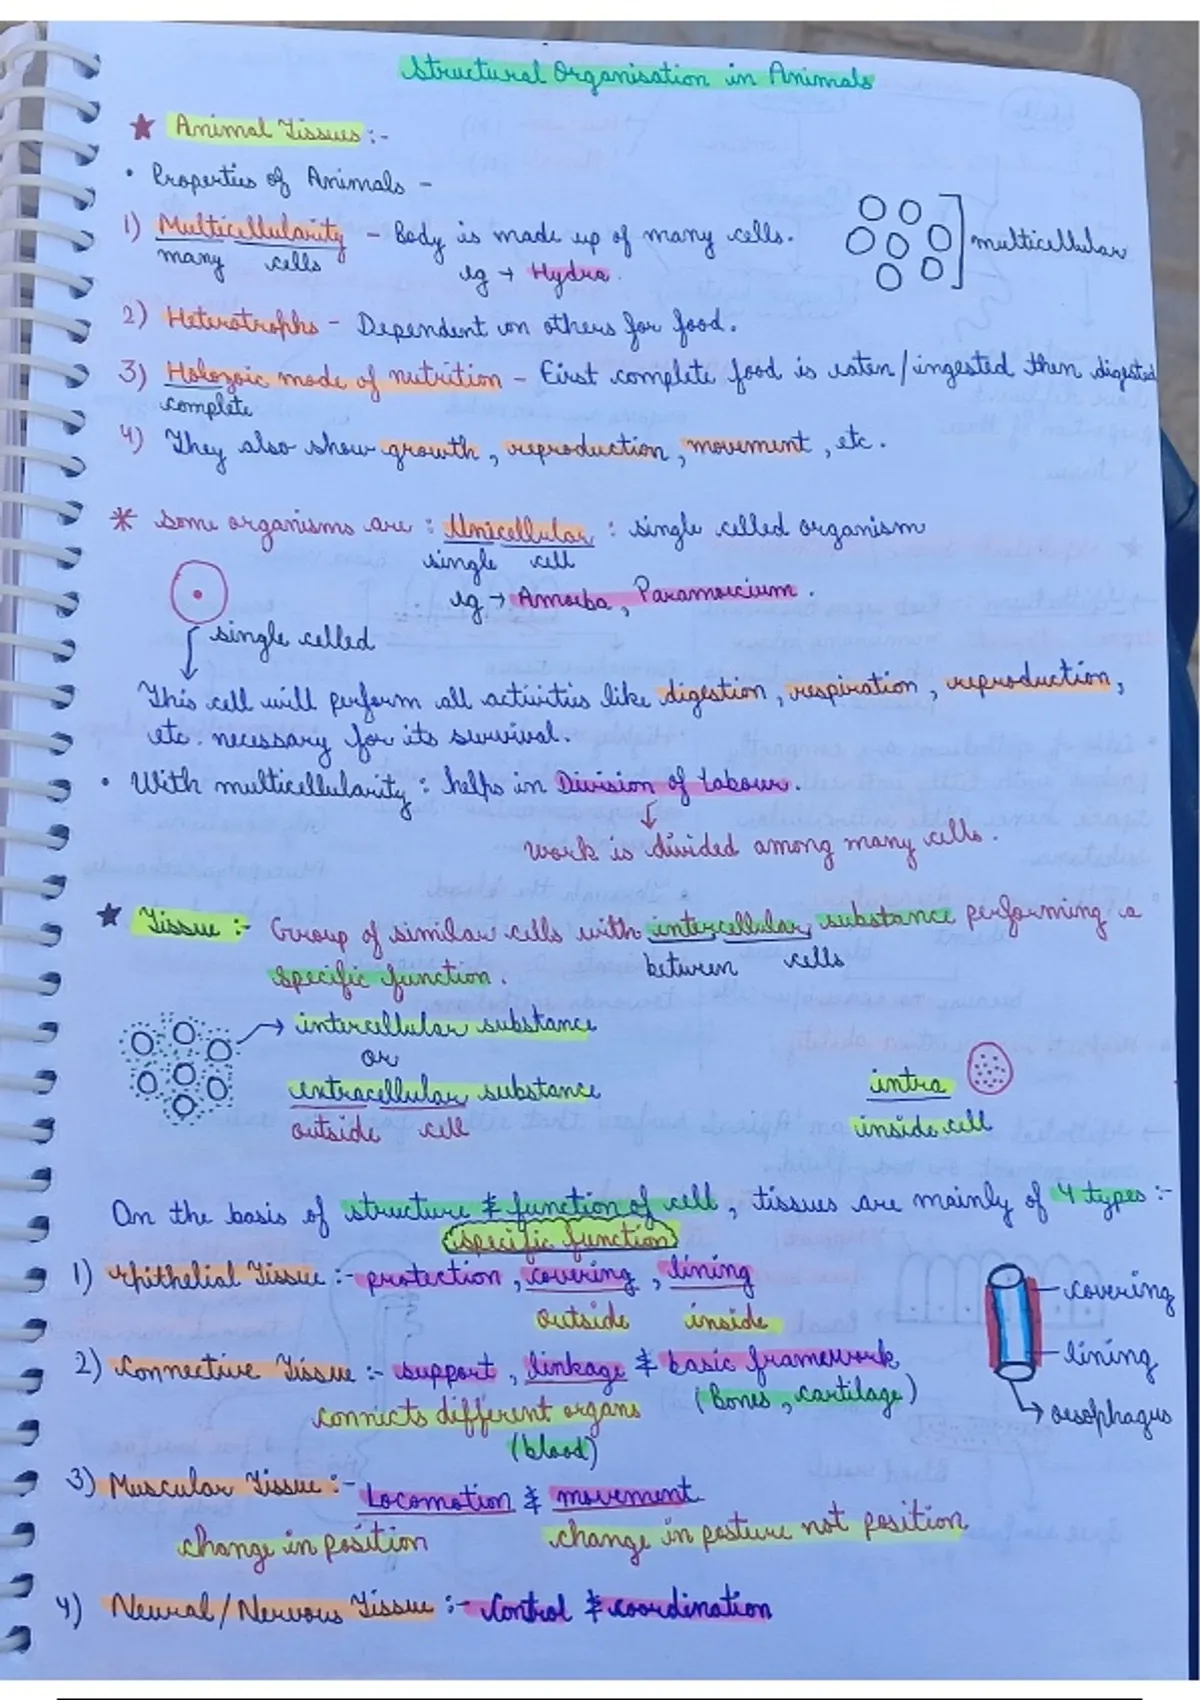 Structural Organisation in Animals
★ Animal Tissues :-
• Properties of Animals -
1) Multicellularity - Body is made up of many cells.
many cells
eg → Hydra.
multicellular
2) Heterotrophs - Dependent on others for food.
3) Holozoic mode of nutrition - First complete food is eaten/ingested then digested
complete
4) They also show growth, reproduction, movement, etc.
* Some organisms are : Unicellular : single celled organism
single cell
eg → Amoeba, Paramoecium.
single celled
This cell will perform all activities like digestion, respiration, reproduction,
etc. necessary for its survival.
• With multicellularity : helps in Division of Labour.
work is divided among many cells.
★ Tissue :- Group of similar cells with intercellular substance performing a
between cells
specific function.
→ intercellular substance
or
extracellular substance
outside cell
intra
inside cell
On the basis of structure & function of cell, tissues are mainly of 4 types :-
(specific function)
1) Epithelial Tissue :- protection, covering, lining
outside inside
covering
lining
oesophagus
2) Connective Tissue :- support, linkage & basic framework
connects different organs (Bones, cartilage)
(blood)
3) Muscular Tissue :- Locomotion & movement
change in position change in posture not position
4) Neural/Nervous Tissue :- Control & coordination